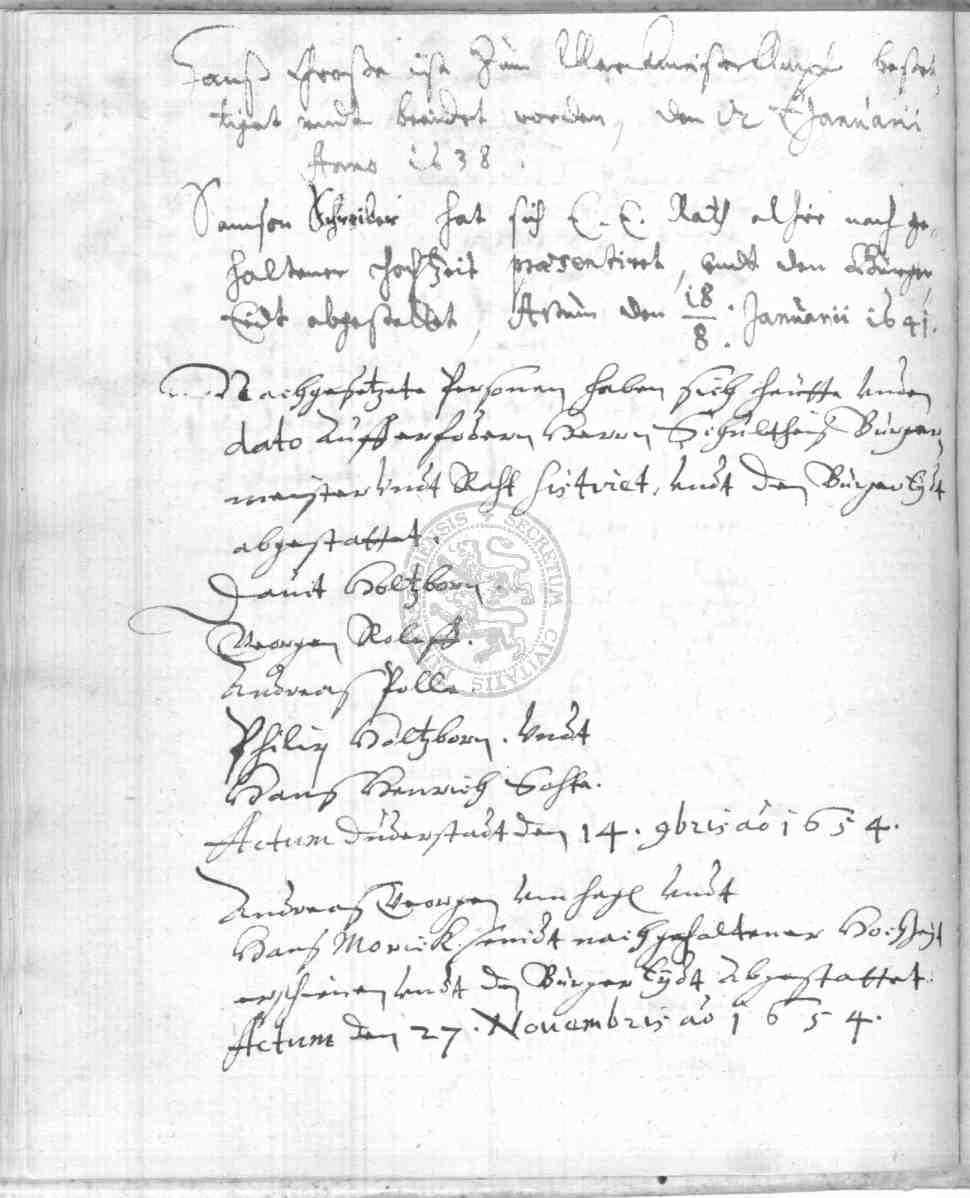 Hanß Große ist Zum Marckmeister Ampt beste,
tiget undt beeidet worden, den 12 Januarii
Anno 1638.
Samson Schreiber hat sich E. E. Rath alhie nach ge,
haltener HochZeit præsentiret, undt den Bürger
Eidt abgestattet, Actum den 18/8. Januarii 1641.
Nachgesetzete Personen haben sich heutte unden
dato auff erfodern Herrn Schultheiß Bürger,
meister undt Raht sistiret, undt den Bürger Eydt
abgestattet.
Davit Holtzborn.
Georgen Roloff.
Andreas Polle
Philip Holtzborn. undt
Hans Henrich Sohte.
Actum Duderstadt den 14. 9bris aō 1654.
Andreas Georgen vom hagē undt
Hans Morick seindt nach gehaltener Hochzeyt
erschienen undt den Bürger Eydt abgestattet.
Actum den 27. Novembris aō 1654.
SECRETUM CIVITATIS